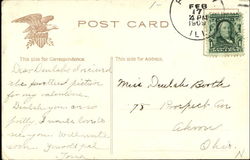 POST CARD
FEB
17
4 PM
1909
ILL.
This side for Correspondence.
This side for Address.
Dear Beulah I received
the postled picture
for my valentine.
Beulah you are so
jolly I would love to
see you. Will write
soon. Your old pal
Miss Beulah Booth
78 Prospect Ave
Akron
Ohio.